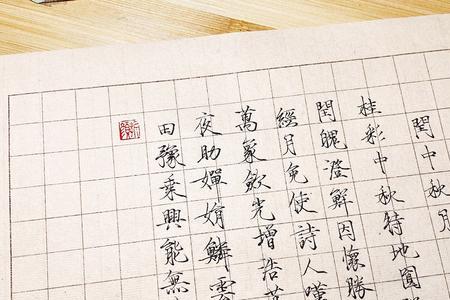 閏中秋月
桂彩中秋特地圓
閏魄澄鮮因懷勝
經月免使詩人嘆
萬象斂光增浩
夜助嬋娟鱗雲
田豫乘興能無